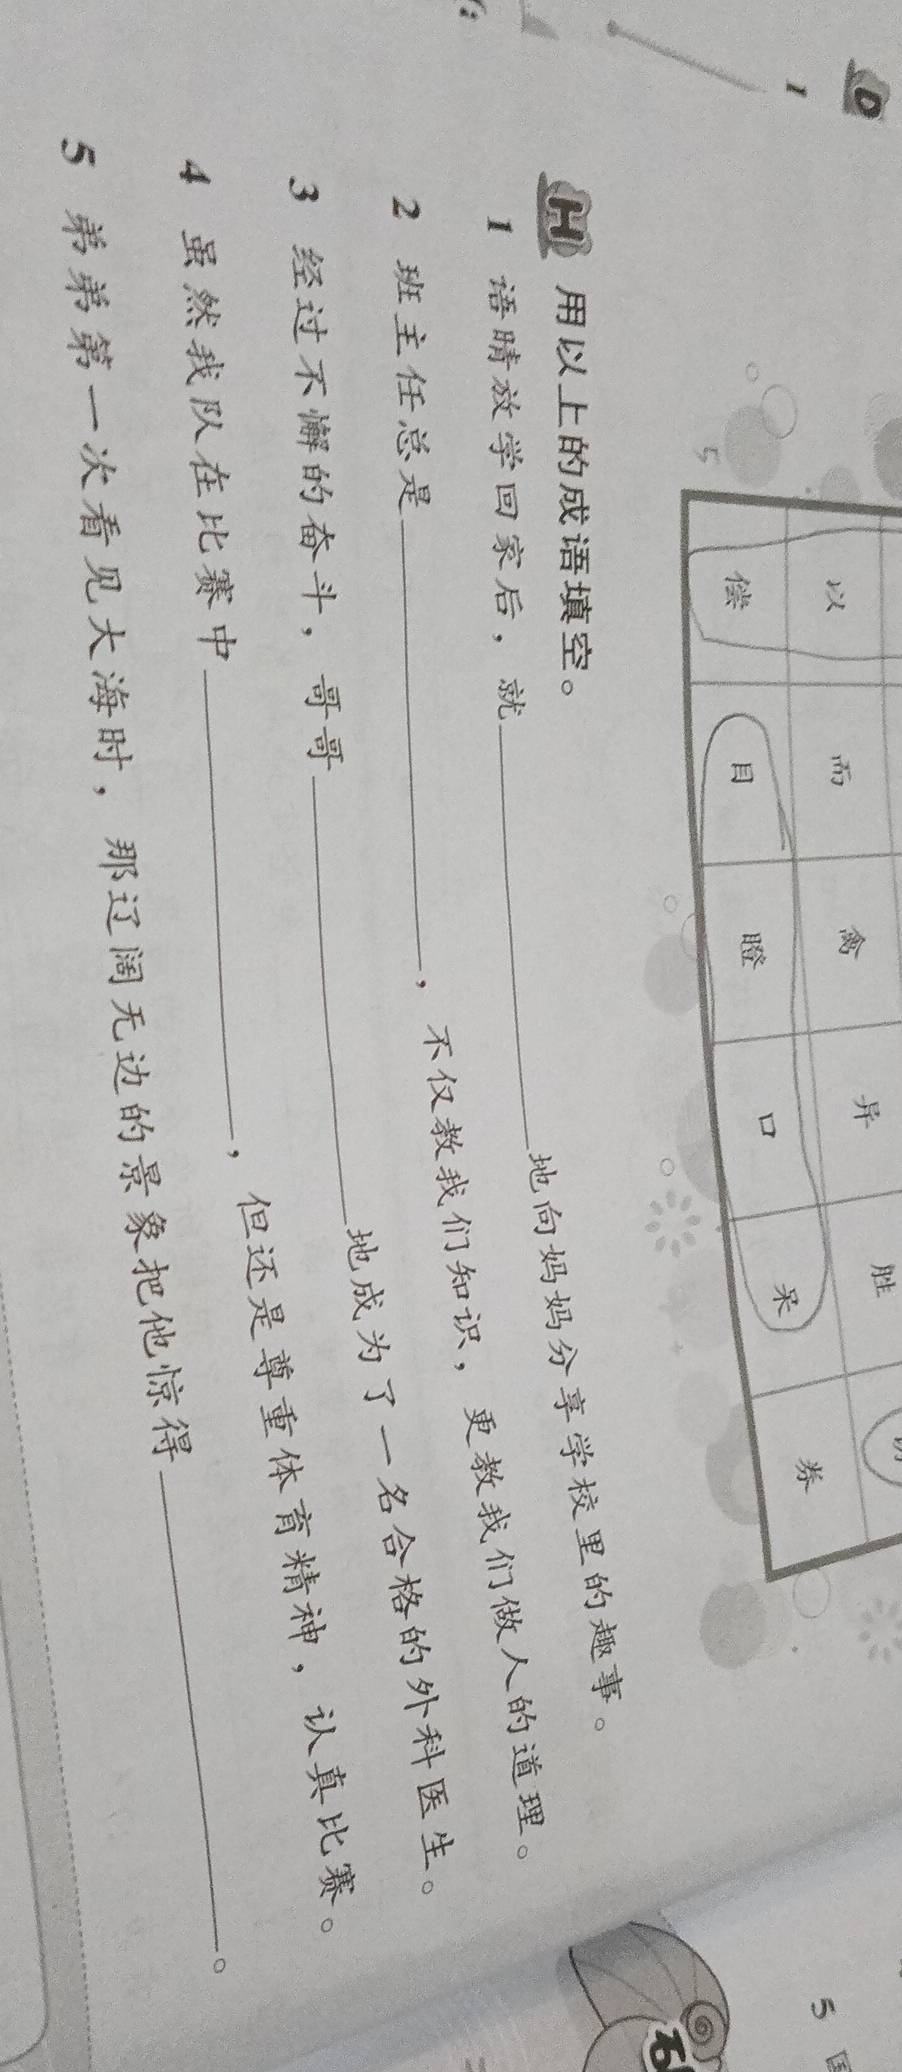 D
1
以 而 禽 异 胜
偿 目 瞪 口 呆 券
5
H 用以上的成语填空。
1 语晴放学回家后，就____地向妈妈分享学校里的趣事。
2 班主任总是____，不仅教我们知识，更教我们做人的道理。
3 经过不懈的奋斗，哥哥____地成为了一名合格的外科医生。
4 虽然我队在比赛中____，但还是尊重体育精神，认真比赛。
5 弟弟第一次看见大海时，那辽阔无边的景象把他惊得____。
5